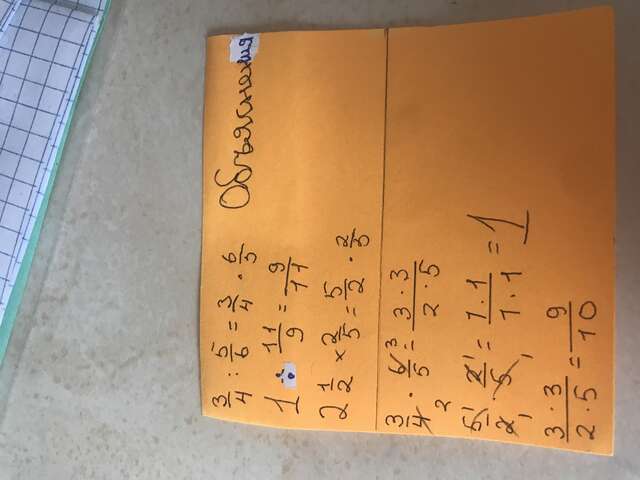 3/4 : 5/6 = 3/4 · 6/5 Объяснения
1 ÷ 11/9 = 9/11
2 1/2 × 2/5 = 5/2 · 2/5
3/4 2 · 6/5 3 = 3 · 3/2 · 5
5/2 1 1 · 2/5 1 1 = 1 · 1/1 · 1 = 1
3 · 3/2 · 5 = 9/10